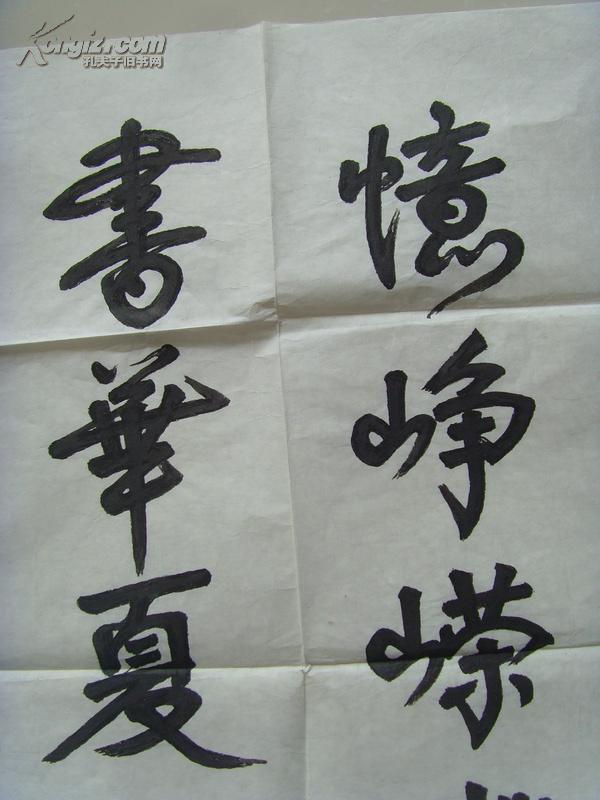 Kongfz.com
孔夫子旧书网
憶峥嵘
書華夏